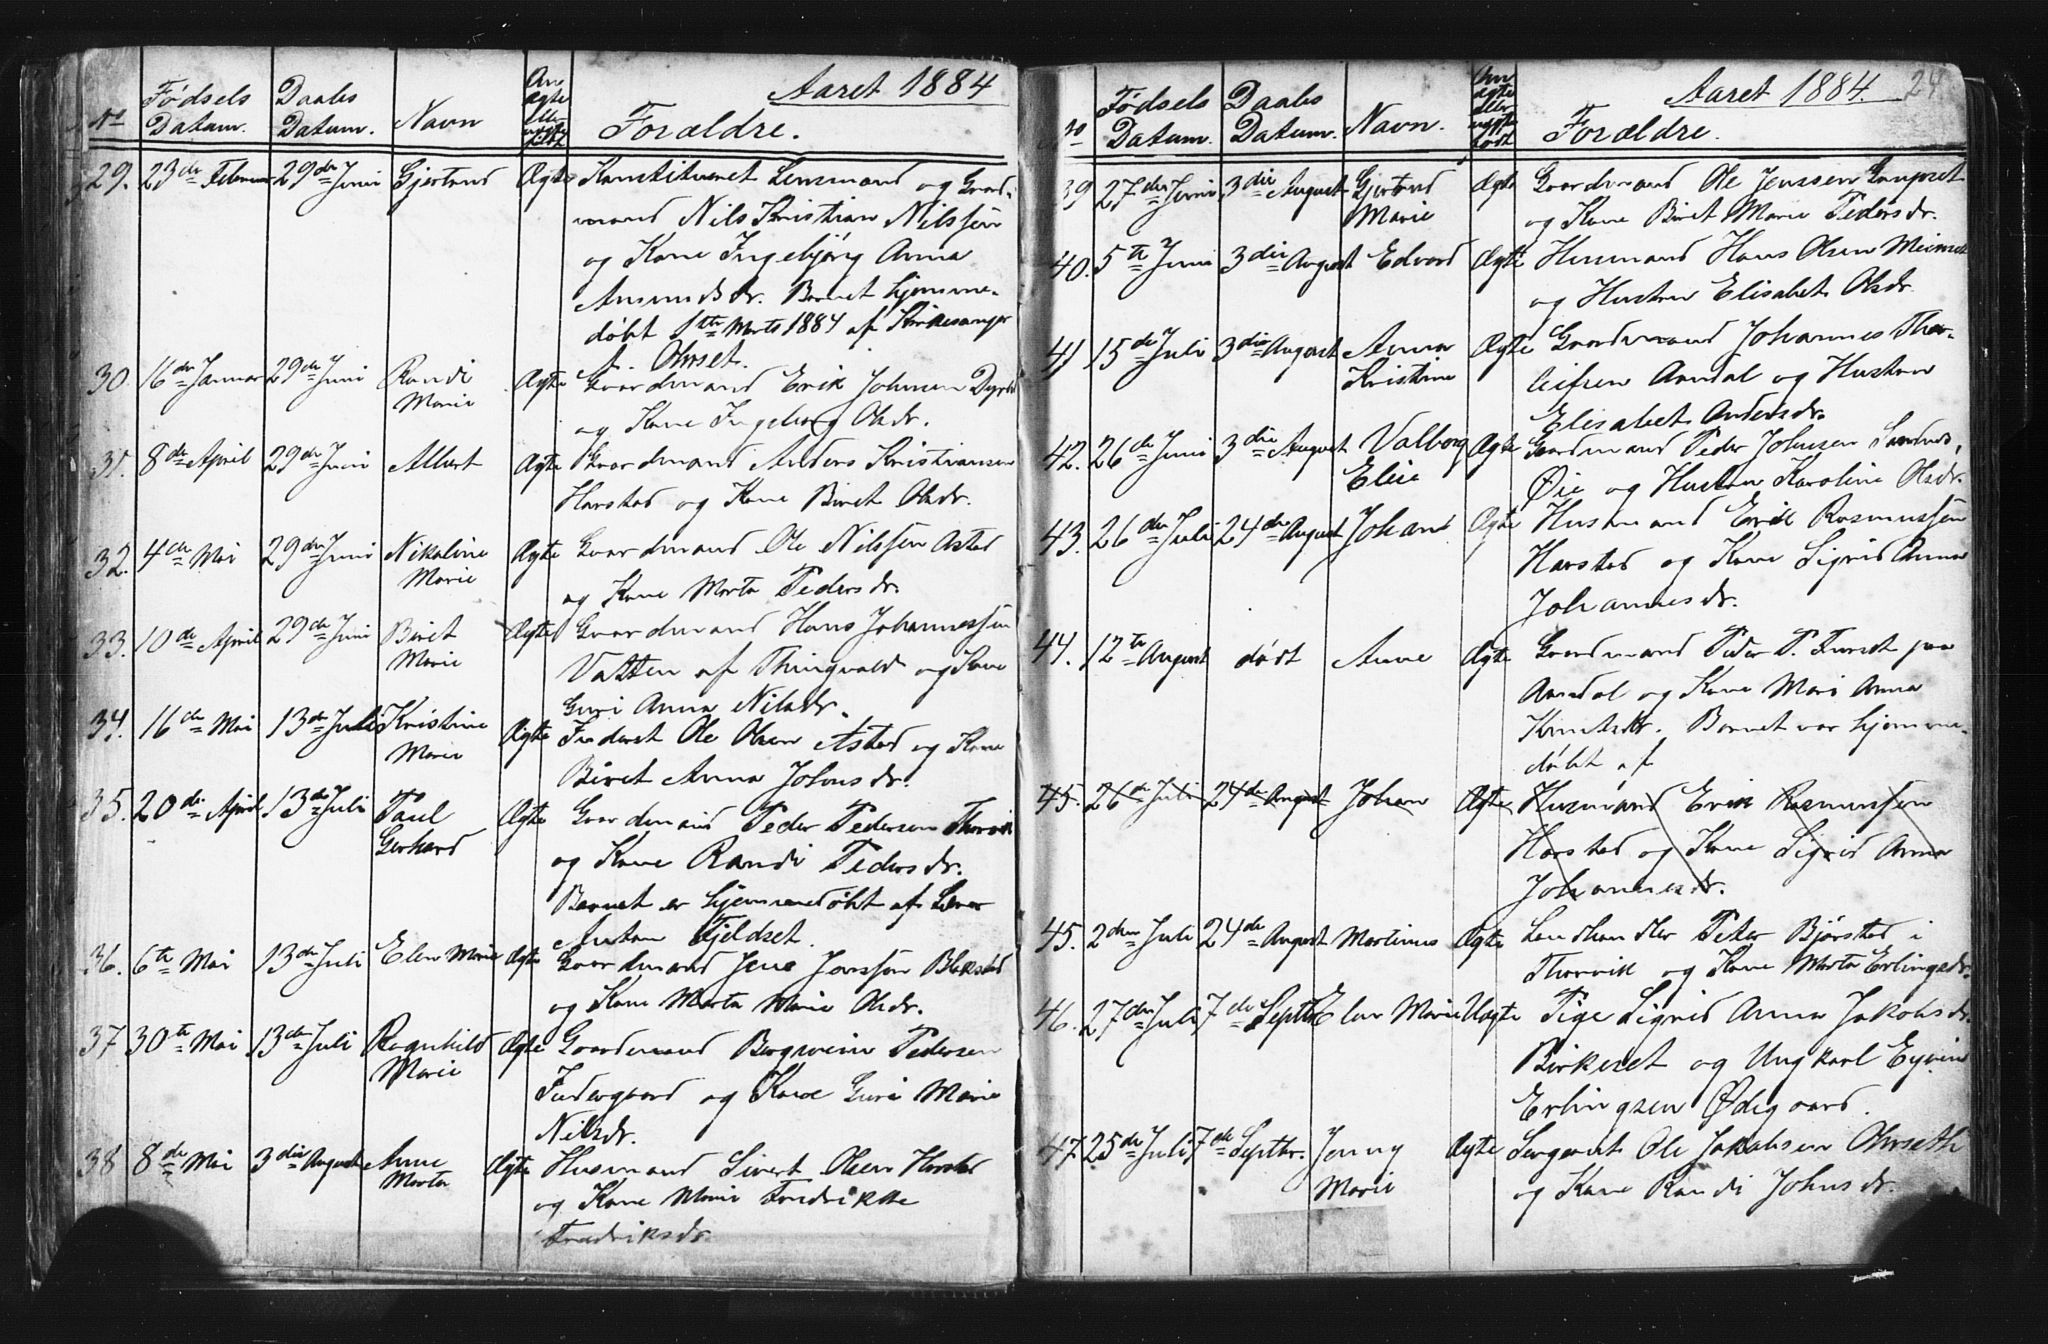 Aaret 1884
No Fødsels Datum. Daabs Datum. Navn Om ægte eller uægte født Forældre.
29. 23de Februar 29de Juni Gjertrud Ægte Konstitueret Lensmand og Gaard-
mand Nils Kristian Nilssen
og Kone Ingebjørg Anna
Amundsdr. Barnet hjemme-
døbt 1ste Marts 1884 af Kirkesanger
Ohrset.
30. 16de Januar 29de Juni Randi Ægte Gaardmand Erik Johnsen
Marie og Kone Ingeborg Olsdr.
31. 8de April 29de Juni Albert Ægte Gaardmand Anders Kristiansen
Harstad og Kone Beret Olsdr.
32. 4de Mai 29de Juni Nikoline Ægte Gaardmand Ole Nilssen Astad
Marie og Kone Marta Pedersdr.
33. 10de April 29de Juni Beret Ægte Gaardmand Hans Johannessen
Marie Vatten af Thingvold og Kone
Guri Anna Nilsdr.
34. 16de Mai 13de Juli Kristine Ægte Ole Olsen Astad og Kone
Marie Beret Anna Johnsdr.
35. 20de April 13de Juli Paul Ægte Gaardmand Peder Pedersen Thorvik
Gerhard og Kone Randi Pedersdr.
Barnet er hjemmedøbt af Lærer
Anton Fjeldset.
36. 6te Mai 13de Juli Elen Marie Ægte Gaardmand Jens Jonssen Blekstad
og Kone Marta Marie Olsdr.
37 30te Mai 13de Juli Ragnhild Ægte Gaardmand Bergsvein Pedersen
Marie og Kone Guri Marie
Nilsdr.
38 8de Mai 3die August Anne Ægte Husmand Sivert Olsen Harstad
Marta og Kone Marie Fredrikke
Fredriksdr.
Aaret 1884. 24
No Fødsels Datum. Daabs Datum. Navn. Om ægte eller uægte født Forældre.
39 27de Juni 3die August Gjertrud Ægte Gaardmand Ole Jenssen
Marie og Kone Beret Marie Pedersdr.
40. 5te Juni 3die August Edvard Ægte Husmand Hans Olsen
og Hustru Elisabet Olsdr.
41 15de Juli 3die August Anna Ægte Gaardmand Johannes Thor-
Kristine leifsen Arndal og Hustru
Elisabet Andersdr.
42. 26de Juni 3die August Valborg Ægte Gaardmand Peder Johnsen Sandnes,
Elise Øie og Hustru Karoline Olsdr.
43. 26de Juli 24de August Johan Ægte Husmand Erik Rasmussen
Harstad og Kone Sigrid Anna
Johannesdr.
44. 12te August dødt Anne Ægte Gaardmand Peder P. Furset paa
Arndal og Kone Mari Anna
Knutsdr. Barnet var hjemme-
døbt af
45. 26de Juli 24de August Johan Ægte Husmand Erik Rasmussen
Harstad og Kone Sigrid Anna
Johannesdr.
45. 2den Juli 24de August Martinus Ægte Landhandler Peter Bjørstad i
Thorvik og Kone Marta Erlingsdr.
46. 27de Juli 7de Septbr Elen Marie Uægte Pige Sigrid Anna Jakobsdr.
Birkeset og Ungkarl Eyvin
Erlingsen Ødegaard.
47. 25de Juli 7de Septbr. Jenny Ægte Sergeant Ole Jakobsen Ohrseth
Marie og Kone Randi Johnsdr.